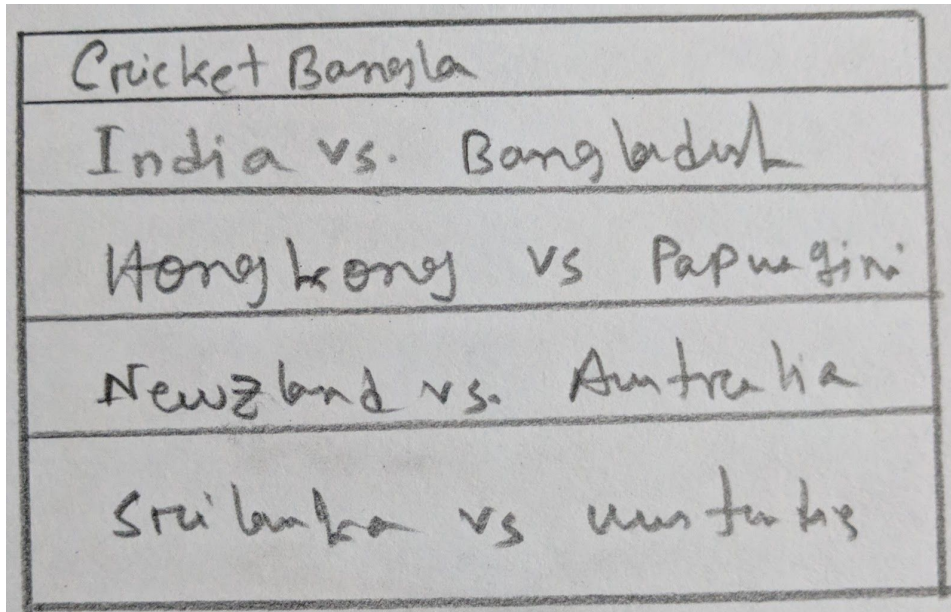 Cricket Bangla
India vs. Bangladesh
Hongkong vs Papua gini
Newzland vs. Australia
Srilanka vs